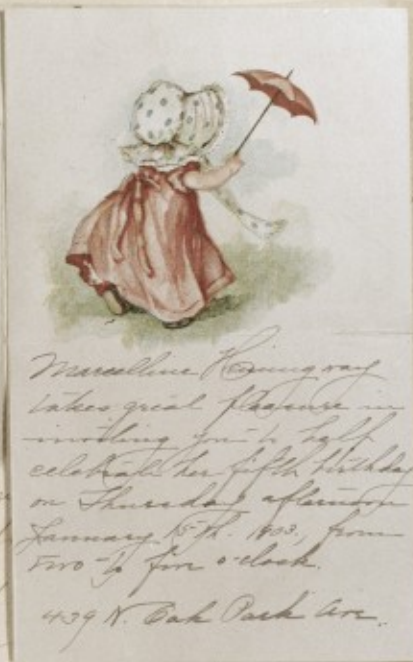 Marcelline Hemingway
takes great pleasure in
inviting you to help
celebrate her fifth birthday
on Thursday afternoon
January 15th. 1903, from
two to five o-clock.
439 N. Oak Park Ave.